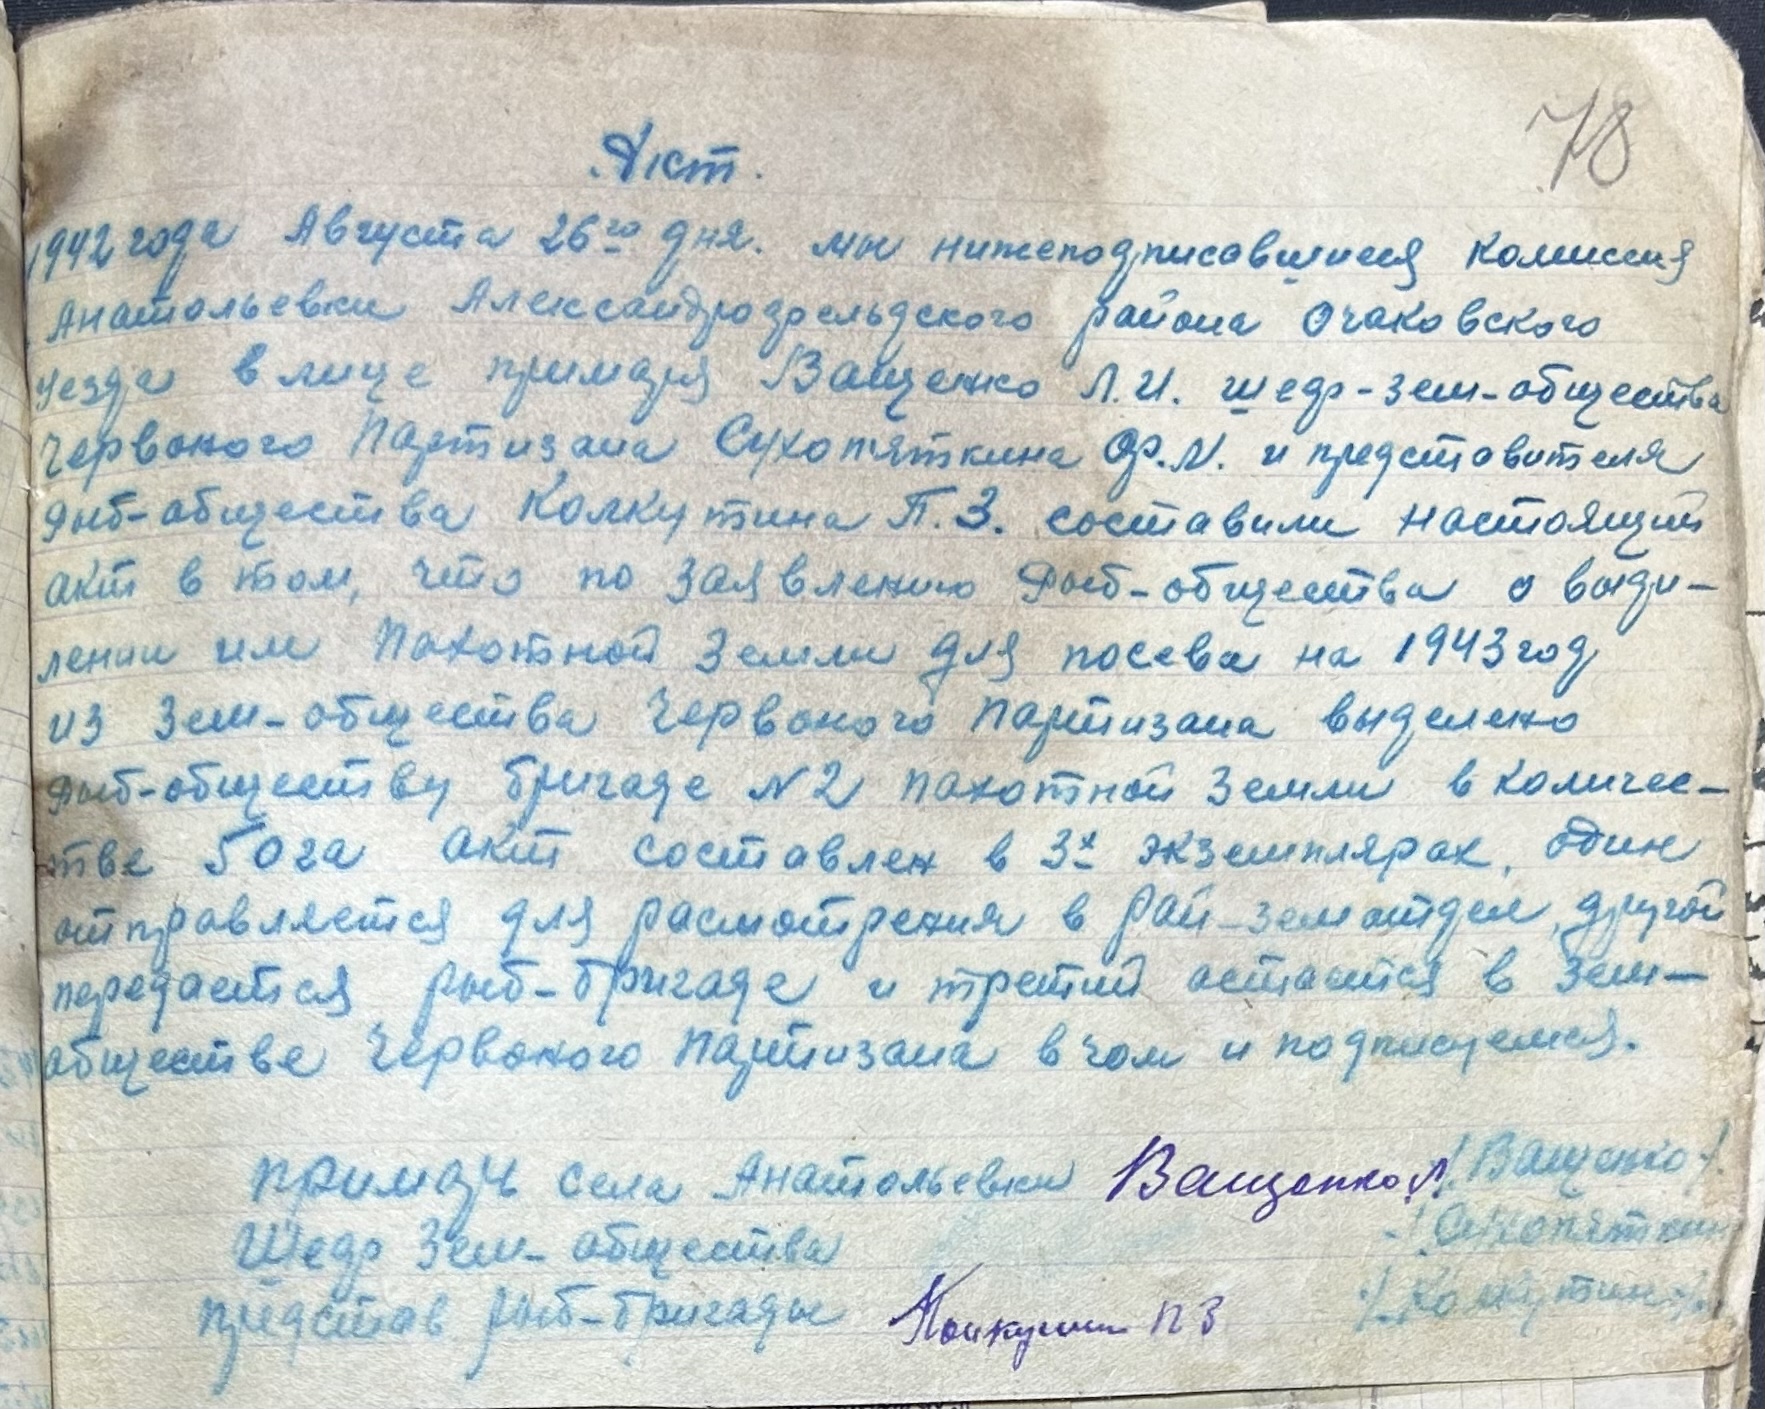 78
Акт.
1942 года Августа 26го дня. мы нижеподписавшиеся комиссия
Анатольевки Александрофельдского района Очаковского
уезда в лице примаря Ващенко Л.И. шеф-зем-общества
Червоного Партизана Сухопяткина Ф.Л. и представителя
Рыб-общества Колкутина П.З. составили настоящий
акт в том, что по заявлению Рыб-общества о выди-
лении им Пахотной Земли для посева на 1943 год
из Зем-общества Червоного Партизана выделено
Рыб-обществу бригаде №2 пахотной Земли в количес-
тве 50 га акт составлен в 3х экземплярах, один
отправляется для расмотрения в Рай-земотдел, другой
передается рыб-бригаде и третий остается в Зем-
обществе Червоного Партизана в чом и подписуемся.
Примарь села Анатольевки Ващенко Л /Ващенко/.
Шеф Зем-общества /Сухопяткин
представ рыб-бригады Колкутин П З /Колкутин/.